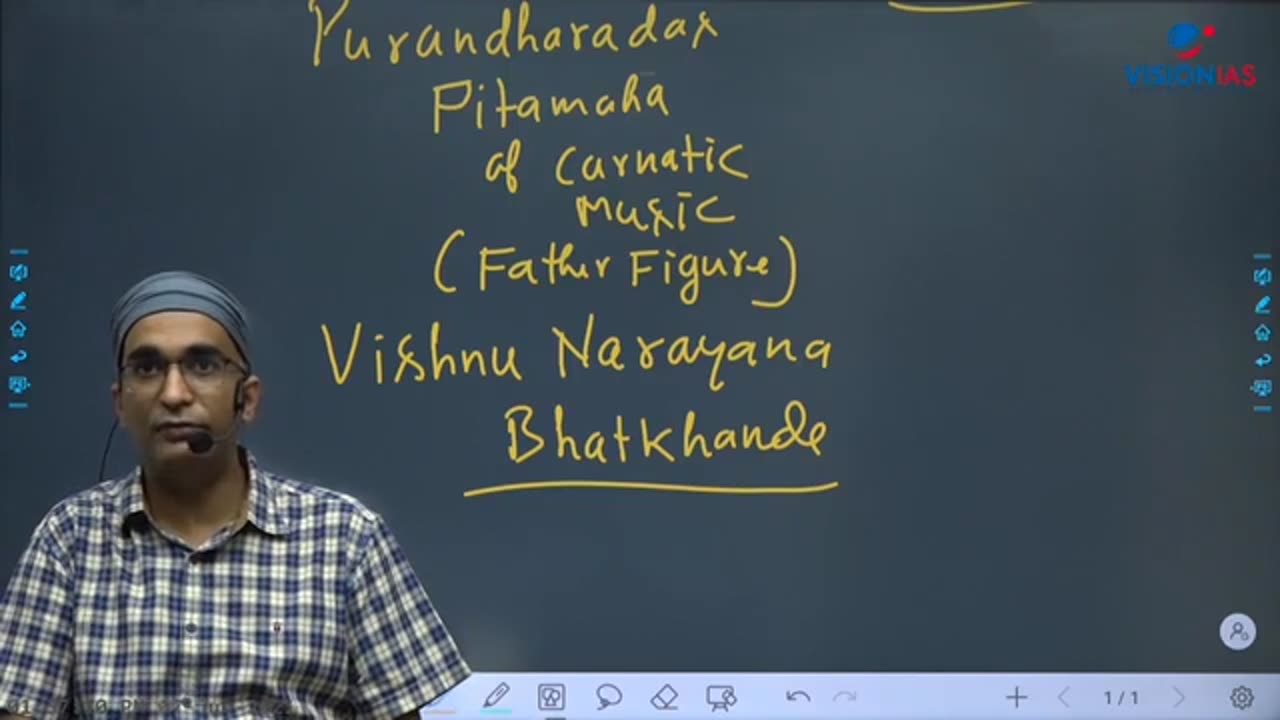 Purandharadas
VISIONIAS
Pitamaha
of Carnatic
music
(Father Figure)
Vishnu Narayana
Bhatkhande
1/1